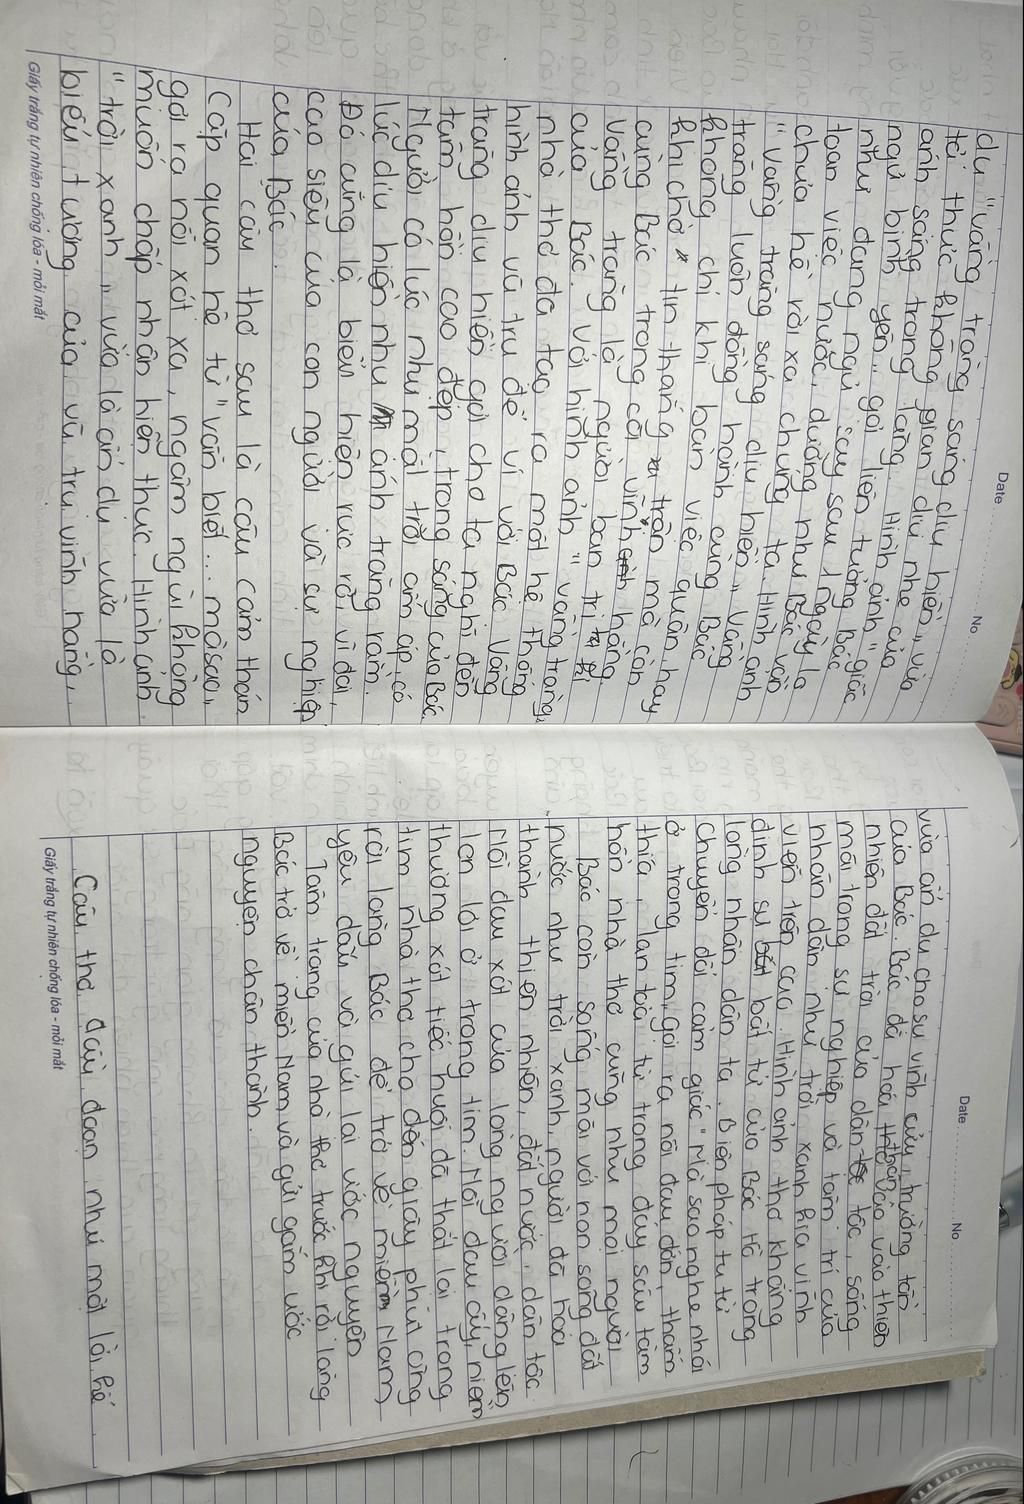 Date No
dụ "vầng trăng sáng dịu hiền", vừa
tả thực không gian dịu nhẹ của
ánh sáng trong lăng. Hình ảnh "giấc
ngủ bình yên" gợi liên tưởng Bác
như đang ngủ say sau 1 ngày lo
toan việc nước, dường như Bác vẫn
chưa hề rời xa chúng ta. Hình ảnh
"vầng trăng sáng dịu hiền". Vầng
trăng luôn đồng hành cùng Bác
không chỉ khi bàn việc quân, hay
khi chờ tin thắng trận mà còn
cùng Bác trong cõi vĩnh hằng.
Vầng trăng là người bạn tri kỉ
của Bác. Với hình ảnh "vầng trăng",
nhà thơ đã tạo ra một hệ thống
hình ảnh vũ trụ để ví với Bác. Vầng
trăng dịu hiền gợi cho ta nghĩ đến
tâm hồn cao đẹp, trong sáng của Bác.
Người có lúc như mặt trời ấm áp, có
lúc dịu hiền như ánh trăng rằm.
Đó cũng là biểu hiện rực rỡ, vĩ đại,
cao siêu của con người và sự nghiệp
của Bác.
Hai câu thơ sau là câu cảm thán
Cặp quan hệ từ "vẫn biết... mà sao",
gợi ra nỗi xót xa, ngậm ngùi không
muốn chấp nhận hiện thực. Hình ảnh
"trời xanh" vừa là ẩn dụ vừa là
biểu tượng của vũ trụ vĩnh hằng,
Giấy trắng tự nhiên chống lóa - mỏi mắt
Date No
vừa ẩn dụ cho sự vĩnh cửu, trường tồn
của Bác. Bác đã hoá thân vào vào thiên
nhiên đất trời của dân tộc, sống
mãi trong sự nghiệp và tâm trí của
nhân dân như trời xanh kia vĩnh
viễn trên cao. Hình ảnh thơ khẳng
định sự bất tử của Bác Hồ trong
lòng nhân dân ta. Biện pháp tu từ
chuyển đổi cảm giác "Mà sao nghe nhói
ở trong tim, gợi ra nỗi đau đớn, thấm
thía, lan toả từ trong đáy sâu tâm
hồn nhà thơ cũng như mọi người
Bác còn sống mãi với non sông đất
nước như trời xanh, người đã hoá
thành thiên nhiên, đất nước, dân tộc.
Nỗi đau xót của lòng người dâng lên
lan lói ở trong tim. Nỗi đau ấy, niềm
thương xót tiếc nuối đã thắt lại trong
tim nhà thơ cho đến giây phút cũng
rời lăng Bác để trở về miền Nam,
yêu dấu và gửi lại ước nguyện
Tâm trạng của nhà thơ trước khi rời lăng
Bác trở về miền Nam, và gửi gắm ước
nguyện chân thành.
Câu thơ đầu đoạn như một lời kể
Giấy trắng tự nhiên chống lóa - mỏi mắt